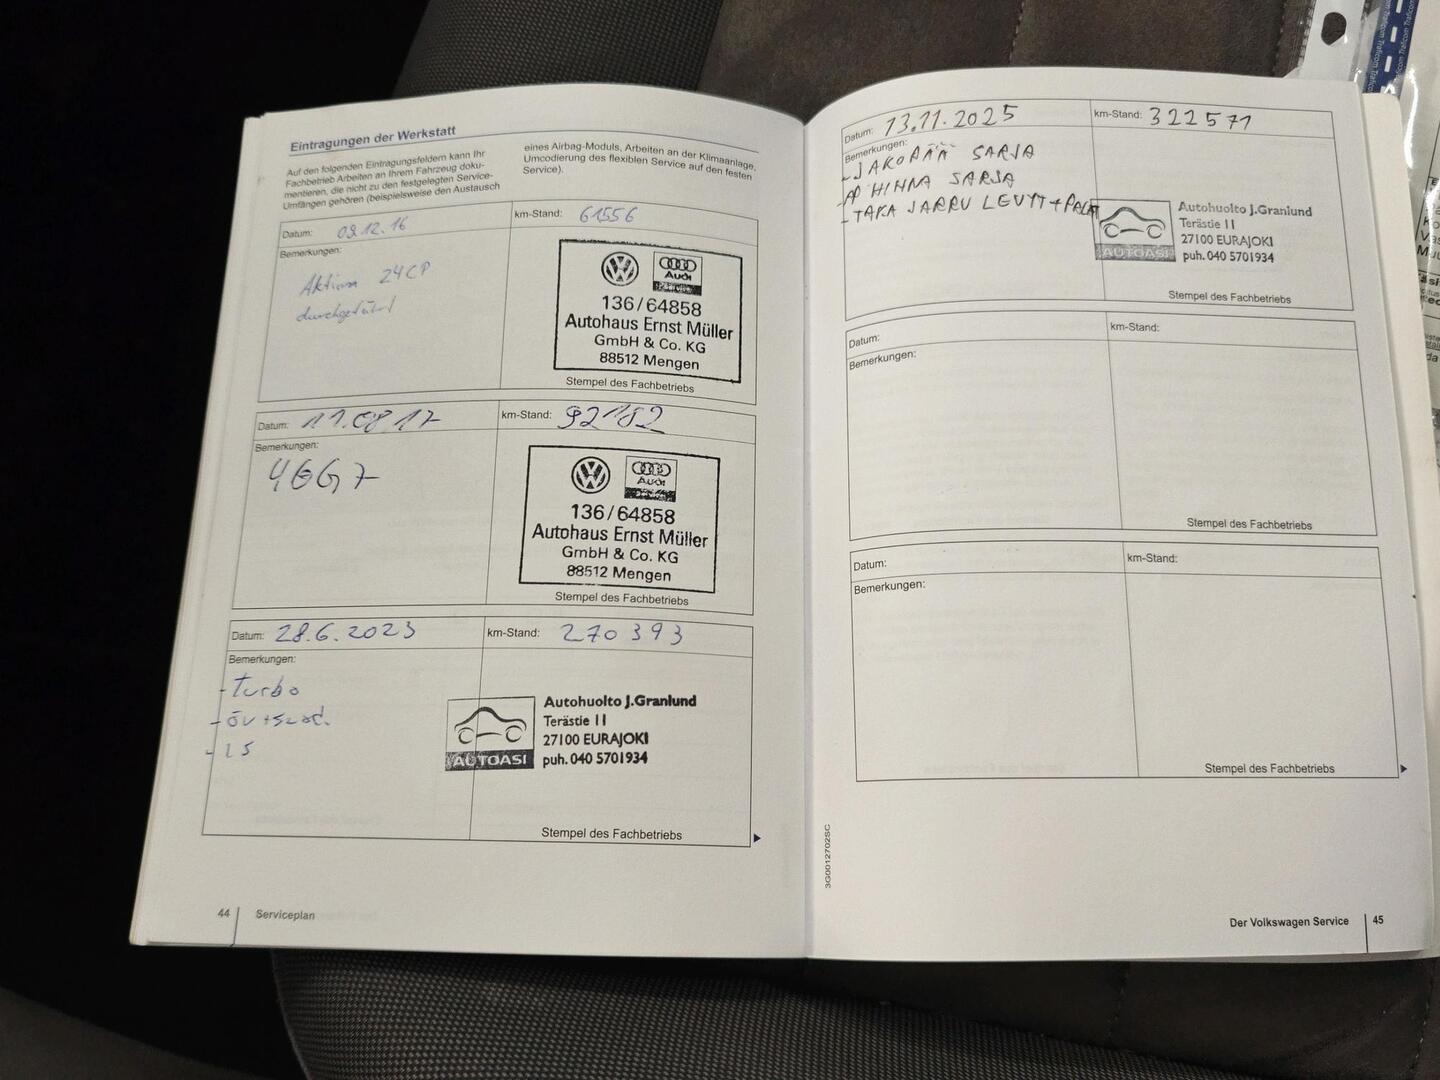 Eintragungen der Werkstatt
Auf den folgenden Eintragungsfeldern kann Ihr
Fachbetrieb Arbeiten an Ihrem Fahrzeug doku-
mentieren, die nicht zu den festgelegten Service-
Umfängen gehören (beispielsweise den Austausch
eines Airbag-Moduls, Arbeiten an der Klimaanlage,
Umcodierung des flexiblen Service auf den festen
Service).
Datum: 09.12.16
km-Stand: 61556
Bemerkungen:
Aktion 24CP
durchgeführt
Audi
Service
136/64858
Autohaus Ernst Müller
GmbH & Co. KG
88512 Mengen
Stempel des Fachbetriebs
Datum: 11.08.17
km-Stand: 92182
Bemerkungen:
Audi
136/64858
Autohaus Ernst Müller
GmbH & Co. KG
88512 Mengen
Stempel des Fachbetriebs
Datum: 28.6.2023
km-Stand: 270393
Bemerkungen:
- Turbo
- öv+suod.
- IS
AUTOASI
Autohuolto J.Granlund
Terästie 11
27100 EURAJOKI
puh. 040 5701934
Stempel des Fachbetriebs
44 Serviceplan
Datum: 13.11.2025
km-Stand: 322571
Bemerkungen:
- JAKOPÄÄ SARJA
- AP HIHNA SARJA
- TAKA JARRU LEVYT + PALAT
AUTOASI
Autohuolto J.Granlund
Terästie 11
27100 EURAJOKI
puh. 040 5701934
Stempel des Fachbetriebs
Datum:
km-Stand:
Bemerkungen:
Stempel des Fachbetriebs
Datum:
km-Stand:
Bemerkungen:
Stempel des Fachbetriebs
3G0012702SC
Der Volkswagen Service 45
Traficom Traficom Traficom